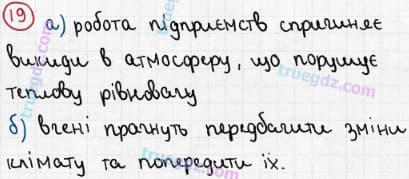 19 а) робота підприємств спричиняє
викиди в атмосферу, що порушує
теплову рівновагу
б) вчені прагнуть передбачити зміни
клімату та попередити їх.
truegdz.com
truegdz.com